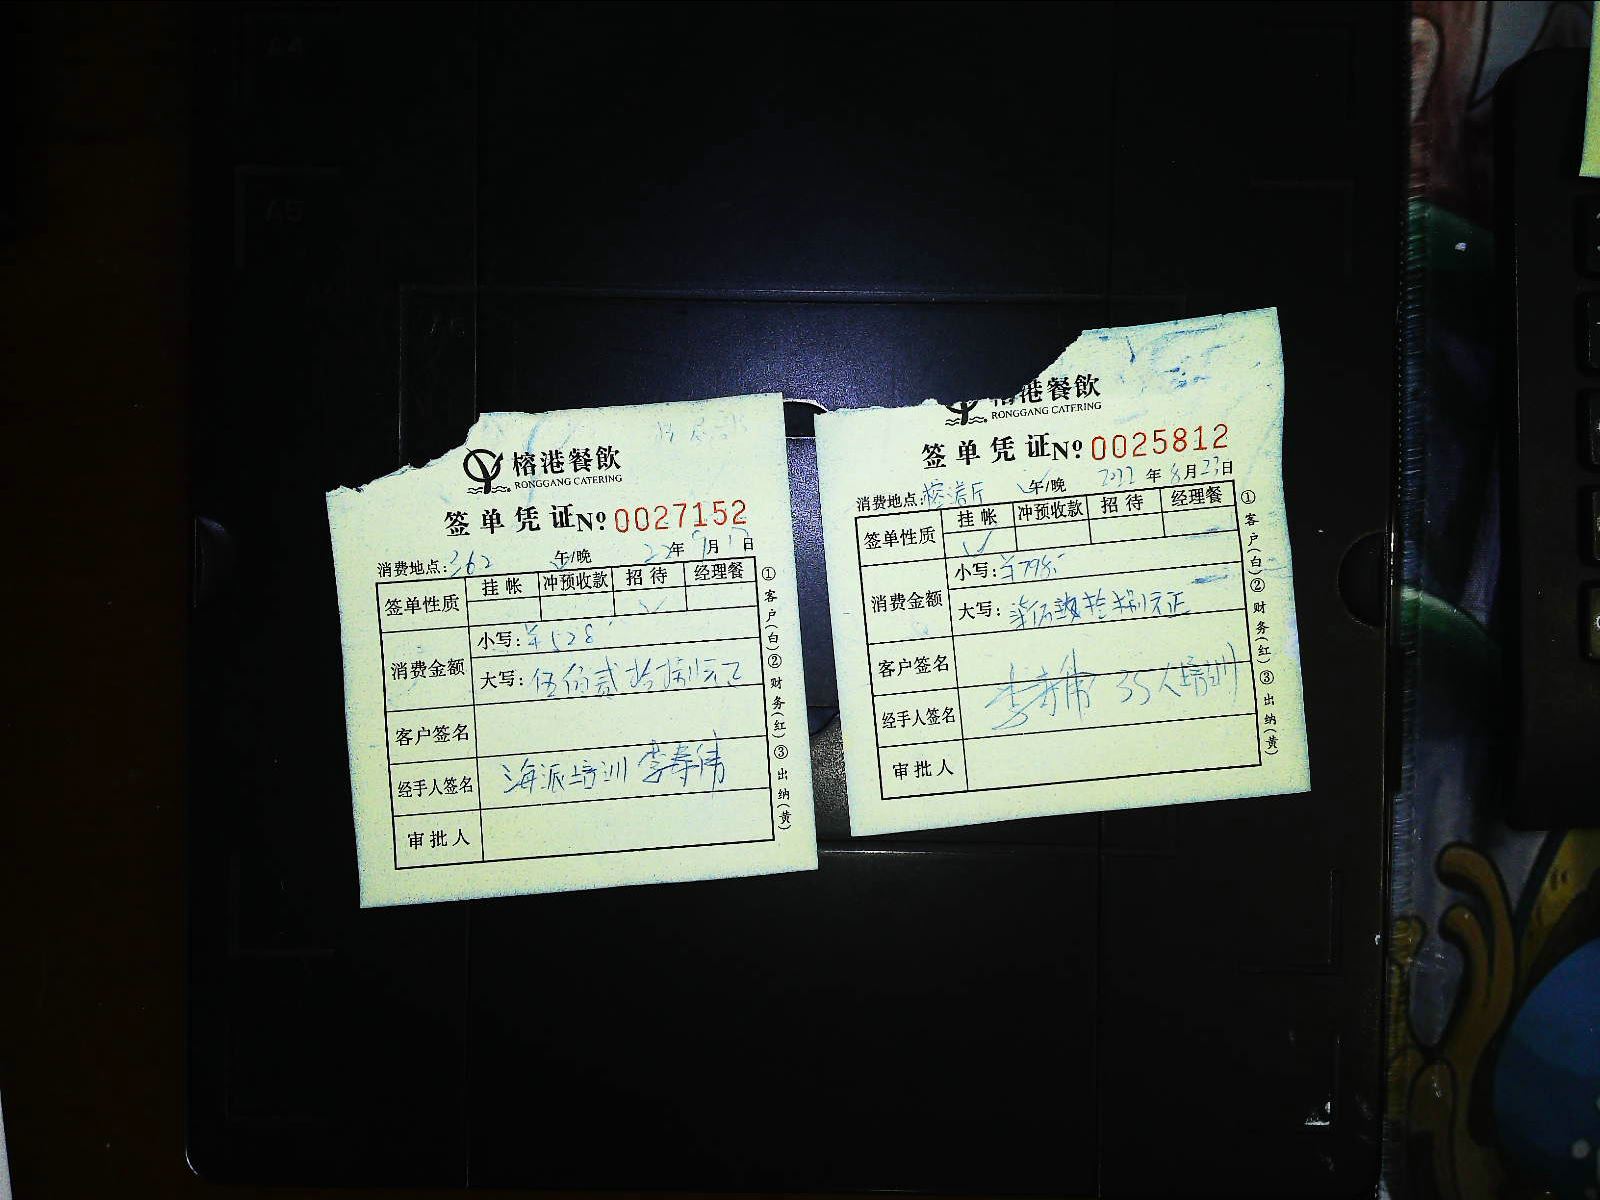 榕港餐飲
RONGGANG CATERING
签单凭证№ 0027152
消费地点:362 午/晚 22年9月1日
签单性质 挂帐 冲预收款 招待 经理餐
✓
消费金额 小写:¥528
大写:伍佰贰拾捌元正
客户签名
经手人签名 海派培训 李寿伟
审批人
①客户(白)②财务(红)③出纳(黄)
榕港餐飲
RONGGANG CATERING
签单凭证№ 0025812
消费地点:榕港厅 午/晚 2022年8月23日
签单性质 挂帐 冲预收款 招待 经理餐
✓
消费金额 小写:¥798
大写:柒佰玖拾捌元正
客户签名
经手人签名 李寿伟 35人培训
审批人
①客户(白)②财务(红)③出纳(黄)